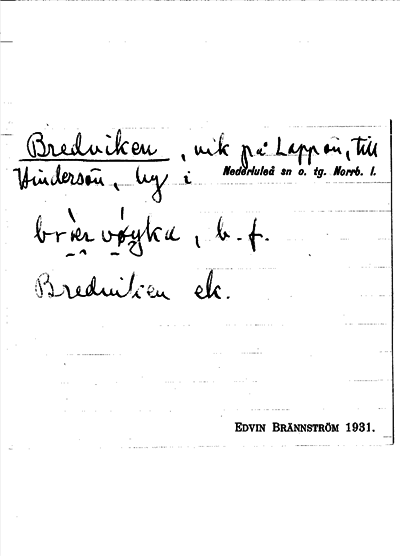 Bredviken, vik på Lappön, till
Hindersön, by i Nederluleå sn o. tg. Norrb. l.
b. f.
Bredviken ek.
EDVIN BRÄNNSTRÖM 1931.